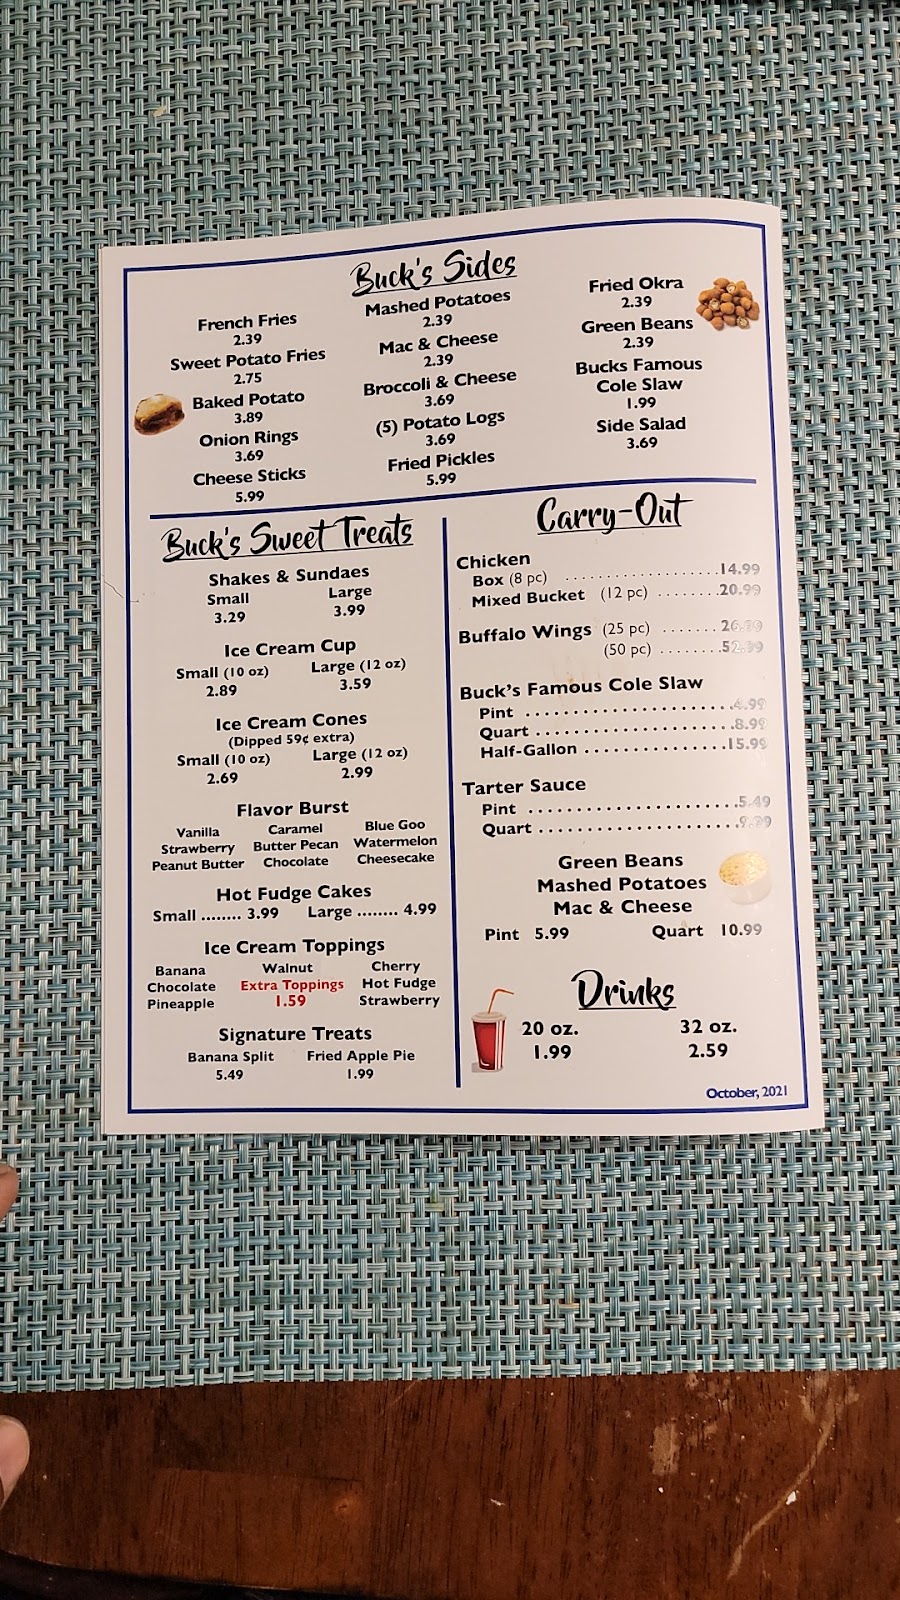 Buck's Sides
French Fries
2.39
Sweet Potato Fries
2.75
Baked Potato
3.89
Onion Rings
3.69
Cheese Sticks
5.99
Mashed Potatoes
2.39
Mac & Cheese
2.39
Broccoli & Cheese
3.69
(5) Potato Logs
3.69
Fried Pickles
5.99
Fried Okra
2.39
Green Beans
2.39
Bucks Famous
Cole Slaw
1.99
Side Salad
3.69
Buck's Sweet Treats
Shakes & Sundaes
Small Large
3.29 3.99
Ice Cream Cup
Small (10 oz) Large (12 oz)
2.89 3.59
Ice Cream Cones
(Dipped 59¢ extra)
Small (10 oz) Large (12 oz)
2.69 2.99
Flavor Burst
Vanilla Caramel Blue Goo
Strawberry Butter Pecan Watermelon
Peanut Butter Chocolate Cheesecake
Hot Fudge Cakes
Small ........ 3.99 Large ........ 4.99
Ice Cream Toppings
Banana Walnut Cherry
Chocolate Extra Toppings Hot Fudge
Pineapple 1.59 Strawberry
Signature Treats
Banana Split Fried Apple Pie
5.49 1.99
Carry-Out
Chicken
Box (8 pc) ...................14.99
Mixed Bucket (12 pc) ........20.99
Buffalo Wings (25 pc) .......
(50 pc) ........52.99
Buck's Famous Cole Slaw
Pint ..........................4.99
Quart .........................8.99
Half-Gallon ..................15.99
Tarter Sauce
Pint ..........................5.49
Quart .........................
Green Beans
Mashed Potatoes
Mac & Cheese
Pint 5.99 Quart 10.99
Drinks
20 oz. 32 oz.
1.99 2.59
October, 2021